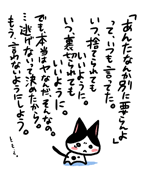 「あんたなんか別に要らんよ」
って、いつも言ってた。
いつ、捨てられても
いいように。
いつ、裏切られても
いいように。
でも、本当はヤなんだ、そんなの。
…逃げないって決めたから。
もう、言わないようにしよう。